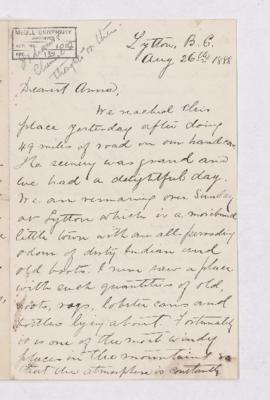 McGILL UNIVERSITY
ARCHIVES
ACC. NO.
Lytton, B.C.
Aug 26th 1888
Dearest Anna,
We reached this
place yesterday after doing
49 miles of road on our handcar
The scenery was grand and
we had a delightful day.
We are remaining over Sunday
at Lytton which is a moribund
little town with an all pervading
odour of dirty Indian and
old boots. I never saw a place
with such quantities of old,
boots, rags, lobster cans and
bottles lying about. Fortunately
it is one of the most windy
places in the mountains so
that the atmosphere is constantly